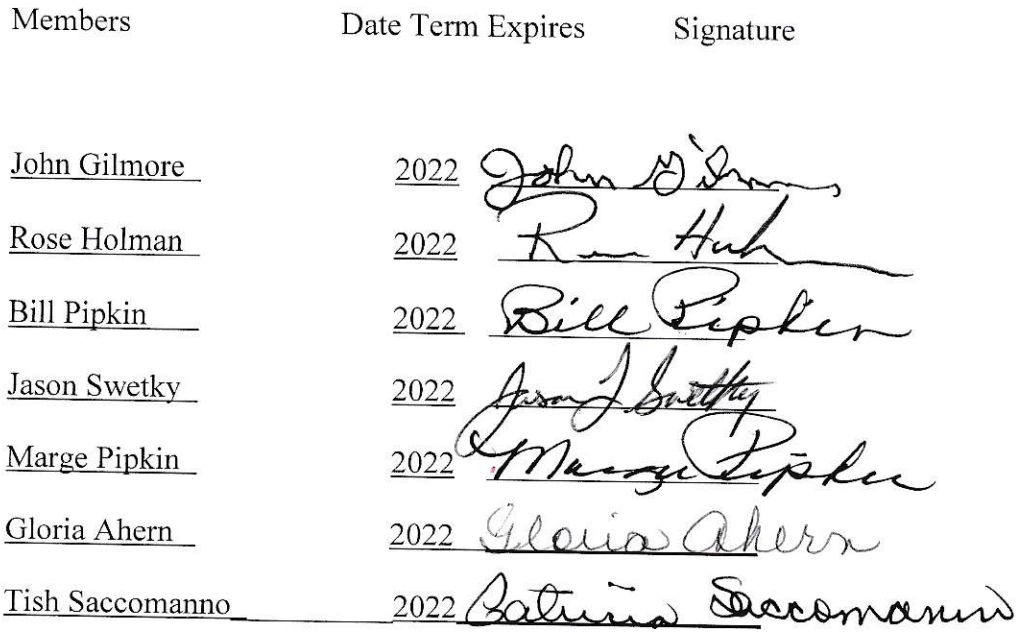 Members Date Term Expires Signature
John Gilmore 2022 John Gilmore
Rose Holman 2022
Bill Pipkin 2022 Bill Pipkin
Jason Swetky 2022 Jason J Swetky
Marge Pipkin 2022 Marge Pipkin
Gloria Ahern 2022 Gloria Ahern
Tish Saccomanno 2022 Saccomanno